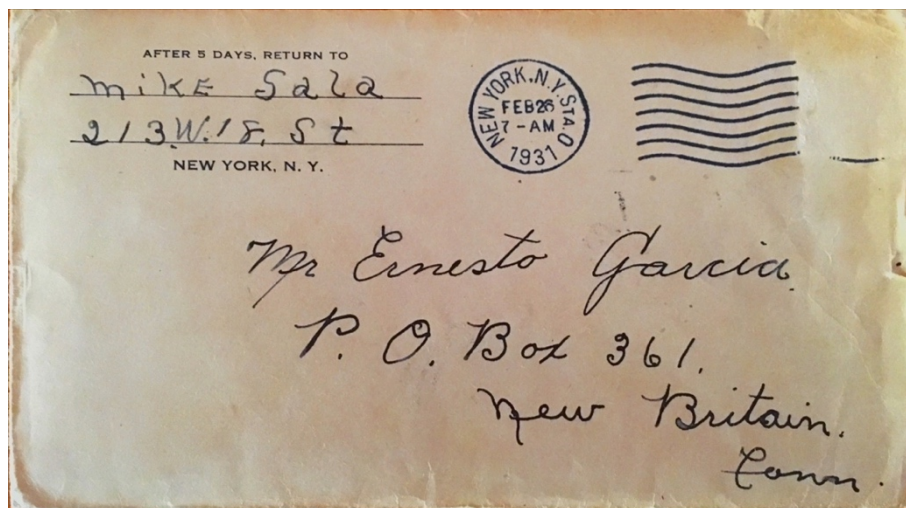 AFTER 5 DAYS, RETURN TO
Mike Sala
213.W.18, St
NEW YORK, N. Y.
NEW YORK, N.Y. STA.O
FEB 26
7-AM
1931
Mr Ernesto Garcia.
P. O. Box 361.
New Britain.
Conn.